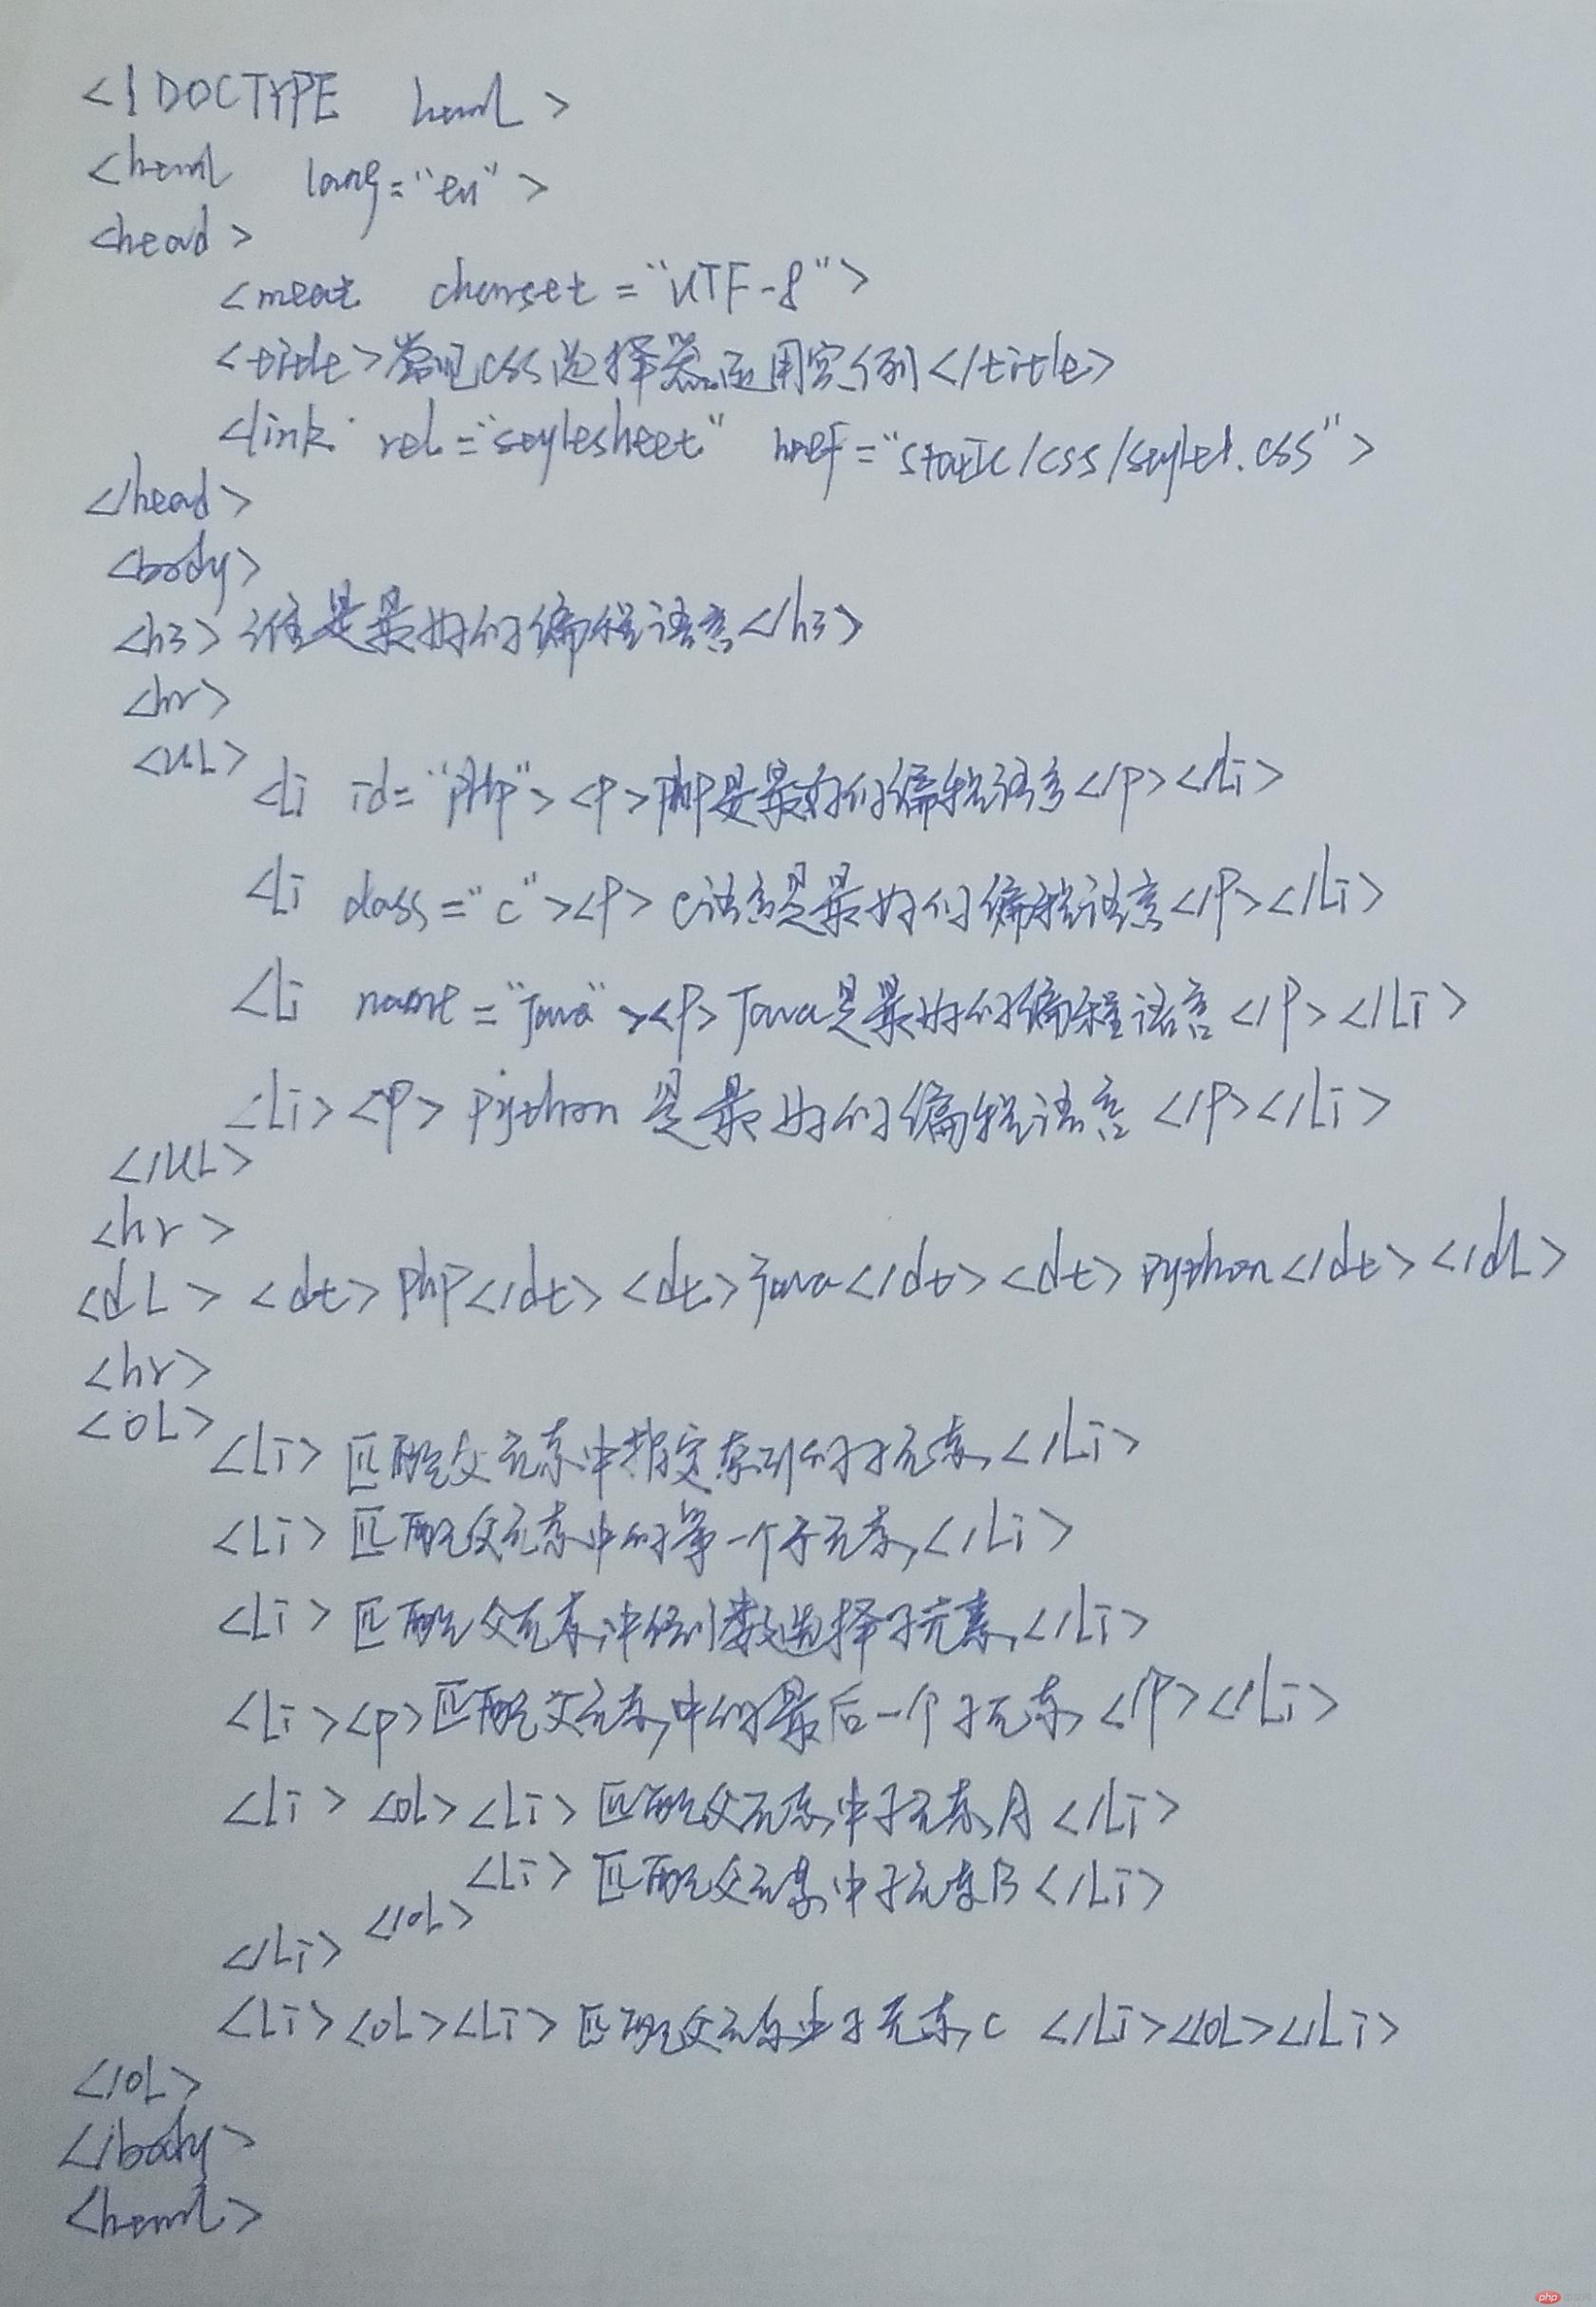 <!DOCTYPE html>
<html lang="en">
<head>
<meat charset="UTF-8">
<title>常见css选择器应用实例</title>
<link rel="stylesheet" href="static/css/style1.css">
</head>
<body>
<h3>谁是最好的编程语言</h3>
<hr>
<UL>
<Li id="php"><P>php是最好的编程语言</P></Li>
<Li class="c"><P>c语言是最好的编程语言</P></Li>
<Li name="Java"><P>Java是最好的编程语言</P></Li>
<Li><P>Python是最好的编程语言</P></Li>
</UL>
<hr>
<dL><dt>PhP</dt><dt>Java</dt><dt>Python</dt></dL>
<hr>
<OL>
<Li>匹配父元素中指定索引的子元素</Li>
<Li>匹配父元素中的第一个子元素</Li>
<Li>匹配父元素中倒数选择子元素</Li>
<Li><P>匹配父元素中的最后一个子元素</P></Li>
<Li><OL><Li>匹配父元素中子元素A</Li>
<Li>匹配父元素中子元素B</Li>
</OL>
</Li>
<Li><OL><Li>匹配父元素中子元素C</Li></OL></Li>
</OL>
</body>
<html>
php